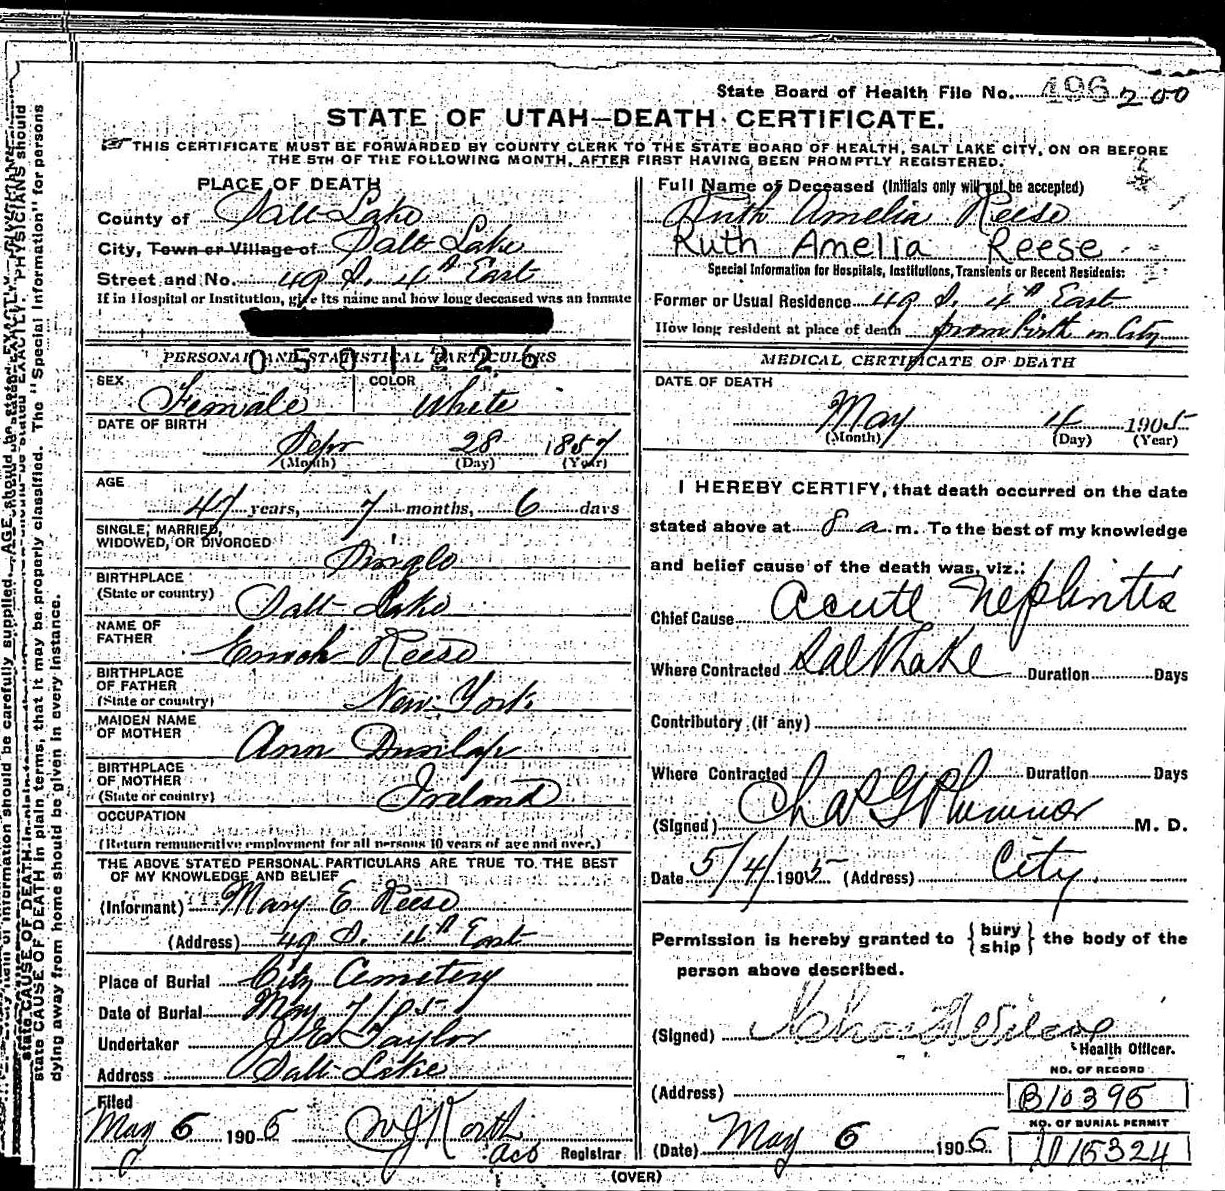 State Board of Health File No. 496 200
STATE OF UTAH—DEATH CERTIFICATE.
THIS CERTIFICATE MUST BE FORWARDED BY COUNTY CLERK TO THE STATE BOARD OF HEALTH, SALT LAKE CITY, ON OR BEFORE
THE 5TH OF THE FOLLOWING MONTH, AFTER FIRST HAVING BEEN PROMPTLY REGISTERED.
PLACE OF DEATH
County of Salt Lake
City, Town or Village of Salt Lake
Street and No. 49 S. 4th East
If in Hospital or Institution, give its name and how long deceased was an inmate
PERSONAL AND STATISTICAL PARTICULARS
0501226
SEX Female COLOR White
DATE OF BIRTH
Sepr 28 1857
(Month) (Day) (Year)
AGE
47 years, 7 months, 6 days
SINGLE, MARRIED,
WIDOWED, OR DIVORCED Single
BIRTHPLACE
(State or country) Salt Lake
NAME OF
FATHER Enoch Reese
BIRTHPLACE
OF FATHER
(State or country) New York
MAIDEN NAME
OF MOTHER Ann Dunlap
BIRTHPLACE
OF MOTHER
(State or country) Ireland
OCCUPATION
(Return remunerative employment for all persons 10 years of age and over.)
THE ABOVE STATED PERSONAL PARTICULARS ARE TRUE TO THE BEST
OF MY KNOWLEDGE AND BELIEF
(Informant) Mary E. Reese
(Address) 49 S. 4th East
Place of Burial City Cemetery
Date of Burial May 7/05
Undertaker J E Taylor
Address Salt Lake
Filed
May 6 1905 Registrar
Full Name of Deceased (Initials only will not be accepted)
Ruth Amelia Reese
Ruth Amelia Reese
Special Information for Hospitals, Institutions, Transients or Recent Residents:
Former or Usual Residence 49 S. 4th East
How long resident at place of death from birth in City
MEDICAL CERTIFICATE OF DEATH
DATE OF DEATH
May 4 1905
(Month) (Day) (Year)
I HEREBY CERTIFY, that death occurred on the date
stated above at 8 a m. To the best of my knowledge
and belief cause of the death was, viz.:
Chief Cause Acute Nephritis
Where Contracted Salt Lake Duration Days
Contributory (if any)
Where Contracted Duration Days
(Signed) Chas G Plummer M. D.
Date 5/4/1905 (Address) City.
Permission is hereby granted to {bury ship} the body of the
person above described.
(Signed) Health Officer.
NO. OF RECORD
(Address) B10395
NO. OF BURIAL PERMIT
(Date) May 6 1905 15324
(OVER)
state CAUSE OF DEATH in plain terms, that it may be properly classified. The "Special Information" for persons
dying away from home should be given in every instance.